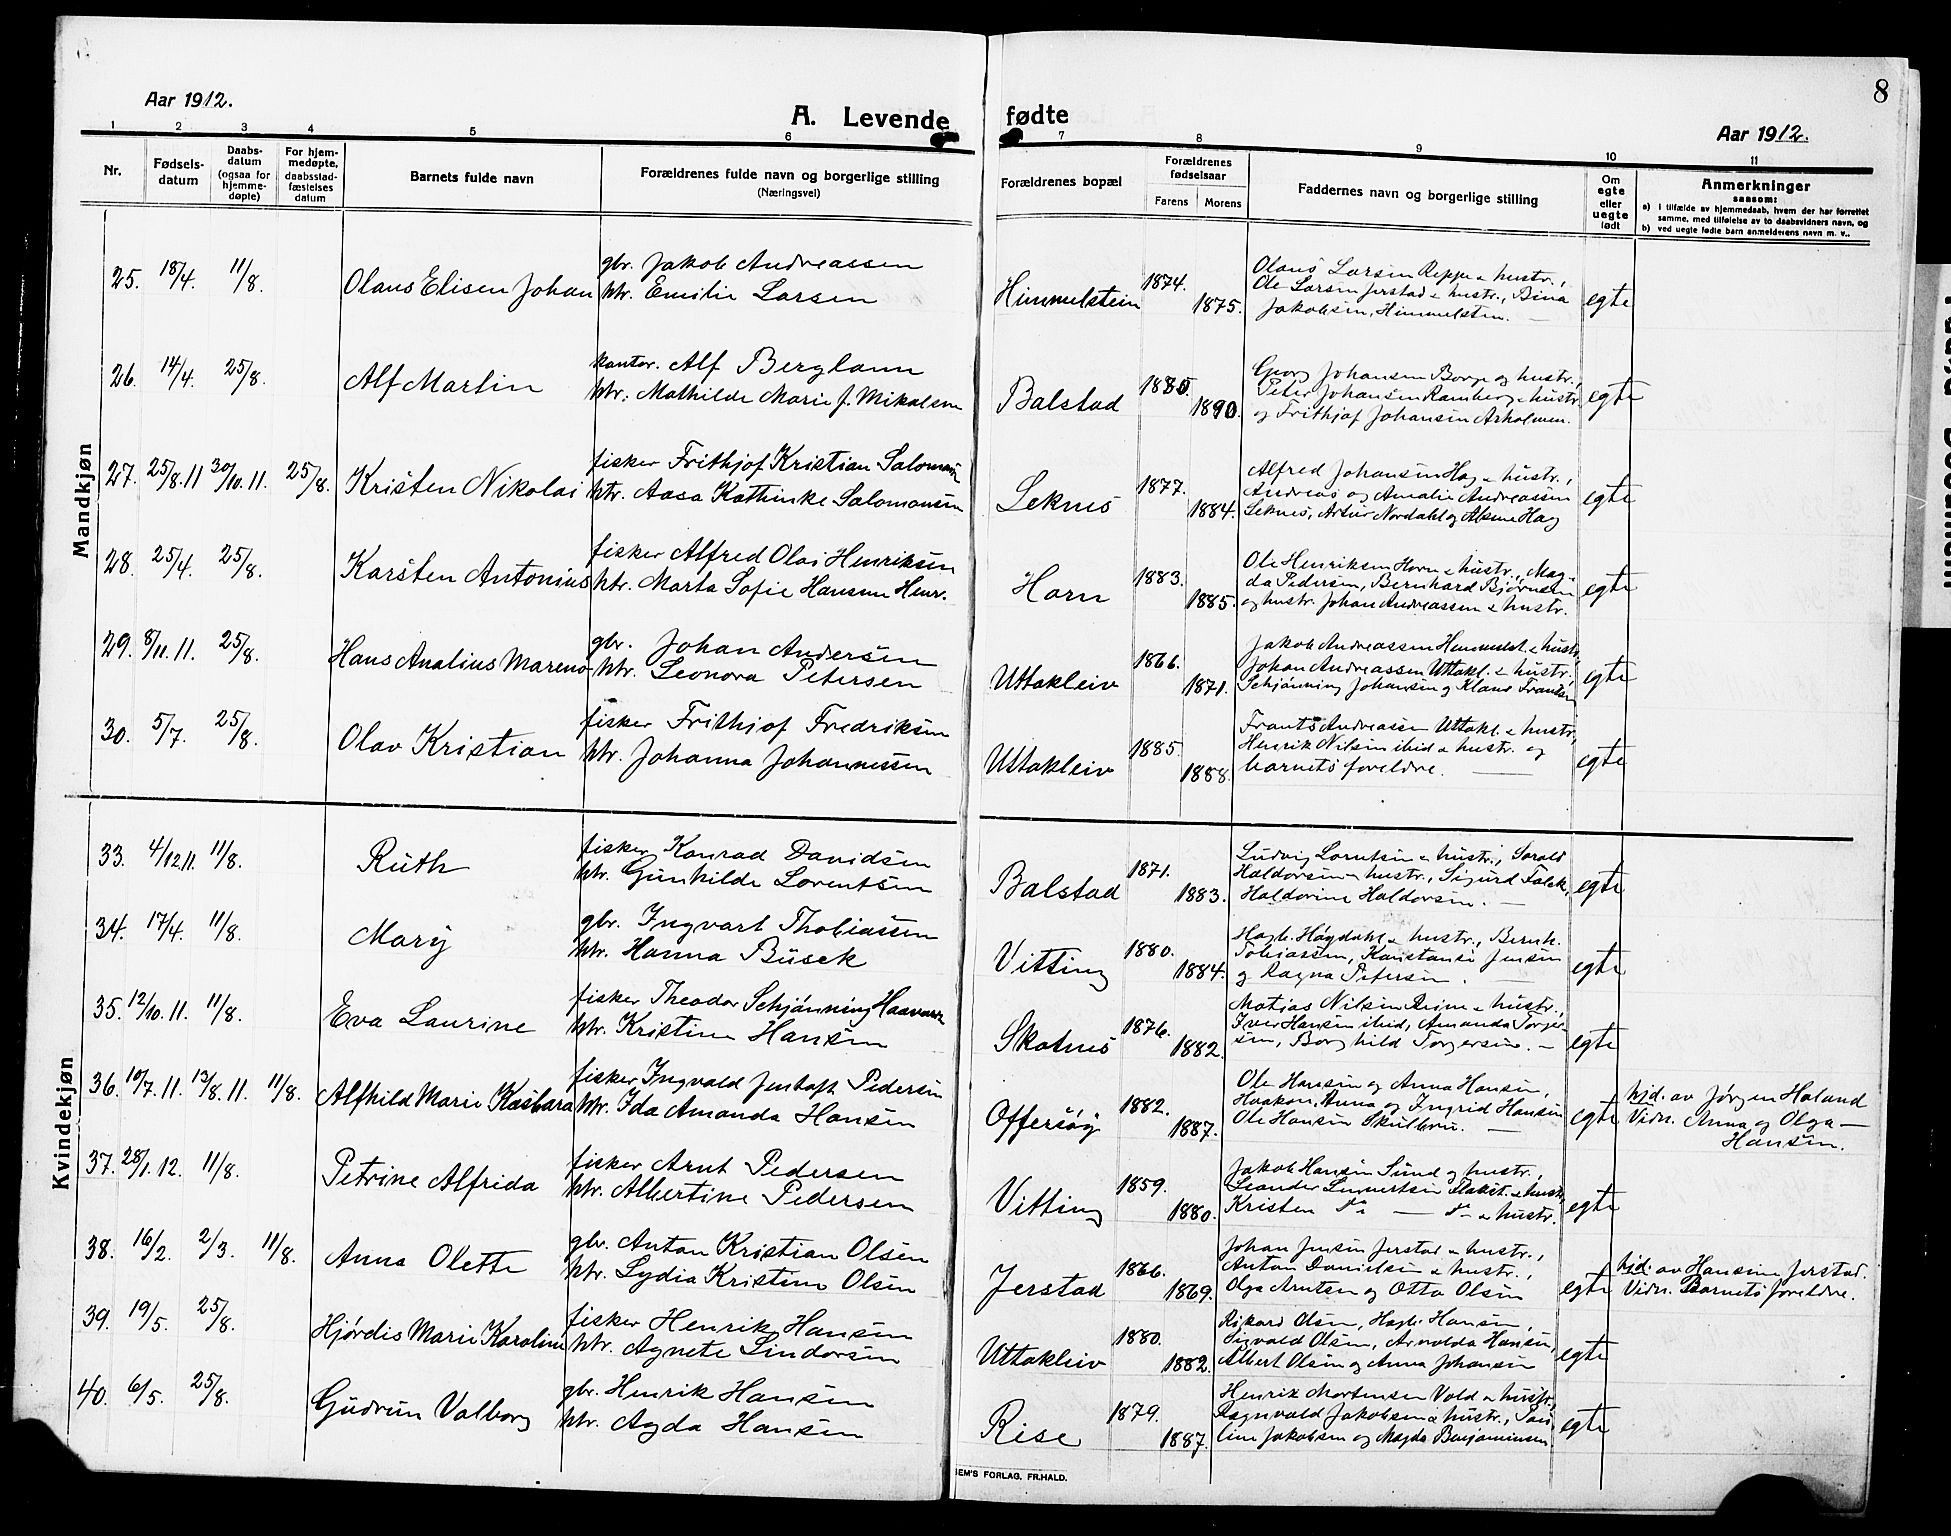 8
Aar 1912.
A. Levende fødte
Aar 1912.
1 2 3 4 5 6 7 8 9 10 11
Nr.
Fødsels-
datum
Daabs-
datum
(ogsaa for
hjemme-
døpte)
For hjem-
medøpte,
daabsstad-
fæstelses
datum
Barnets fulde navn
Forældrenes fulde navn og borgerlige stilling
(Næringsvei)
Forældrenes bopæl
Forældrenes
fødselsaar
Farens Morens
Faddernes navn og borgerlige stilling
Om
egte
eller
uegte
født
Anmerkninger
saasom:
a) i tilfælde av hjemmedaab, hvem der har forrettet
samme, med tilføielse av to daabsvidners navn, og
b) ved uegte fødte barn anmelderens navn m. v..
Mandkjøn
25. 18/4. 11/8. Olaus Elisen Johan
gbr. Jakob Andreassen
htr. Emilie Larsen
Himmelstein 1874. 1875.
Olaus Larsen Reppe & hustr.,
Ole Larsen Jerstad & hustr., Bina
Jakobsen, Himmelstein.
egte
26. 14/4. 25/8. Alf Martin
kontor. Alf Berglann
htr. Mathilde Marie f. Mikalsen
Balstad 1885. 1890.
Georg Johansen Borge og hustr.,
Peter Johansen Ramberg & hustr.
og Frithjof Johansen Arholmen.
egte
27. 25/8.11 30/10.11. 25/8. Kristen Nikolai
fisker Frithjof Kristian Salomonsen
htr. Aasa Kathinke Salomonsen
Leknes 1877. 1884.
Alfred Johansen Hag & hustr.,
Andreas og Amalie Andreassen
Leknes, Artur Nordahl og Alsine Hag
egte
28. 25/4. 25/8. Karsten Antonius
fisker Alfred Olai Henriksen
htr. Marta Sofie Hansen Henr.
Horn 1883. 1885.
Ole Henriksen Horn & hustr., Mag-
da Pedersen, Bernhard Bjørnsen
og hustr. Johan Andreassen & hustr.
egte
29. 8/11.11. 25/8. Hans Analius Mareno
gbr. Johan Andersen
htr. Leonora Petersen
Uttakleiv 1866. 1871.
Jakob Andreassen Himmelst. & hustr.,
Johan Andreassen Uttakl. & hustr.,
Schjønning Johansen og Klaus Frantsen
egte
30. 5/7. 25/8. Olav Kristian
fisker Frithjof Fredriksen
htr. Johanna Johannessen
Uttakleiv 1885. 1888.
Frants Andreassen Uttakl. & hustr.,
Henrik Nilsen ibid & hustr. og
barnets foreldre.
egte
Kvindekjøn
33. 4/12.11. 11/8. Ruth
fisker Konrad Davidsen
htr. Gunhilde Lorentsen
Balstad 1871. 1883.
Ludvig Lorntsen & hustr., Harald
Haldorsen & hustr., Sigurd Falck,
Haldorine Haldorsen.
egte
34. 17/4. 11/8. Mary
gbr. Ingvart Thobiassen
htr. Hanna Busck
Vitting 1880. 1884.
Hagb. Høgdahl & hustr., Bernh.
Tobiassen, Konstanse Jensen
og Ragna Petersen.
egte
35. 12/10.11. 11/8. Eva Laurine
fisker Theodor Schjønning Haavars
htr. Kristine Hansen
Skotnes 1876. 1882.
Matias Nilsen Reine & hustr.,
Iver Hansen ibid, Amanda Torger-
sen, Borghild Torgersen.
egte
36. 19/7.11. 13/8.11. 11/8. Alfhild Marie Kasbara
fisker Ingvald Jentoft Pedersen
htr. Ida Amanda Hansen
Offersøy 1882. 1887.
Ole Hansen og Anna Hansen,
Haakon, Anna og Ingrid Hansen
Ole Hansen Skulbru.
egte
hjd. av Jørgen Haland
Vidn. Anna og Olga
Hansen.
37. 28/1.12. 11/8. Petrine Alfrida
fisker Arnt Pedersen
htr. Albertine Pedersen
Vitting 1859. 1880.
Jakob Hansen Sund og hustr.,
Leander Lennertsen Flakst. & hustr.
Kristen do — do & hustr.
egte
38. 16/2. 2/3. 11/8. Anna Olette
gbr. Anton Kristian Olsen
htr. Lydia Kristine Olsen
Jerstad 1866. 1869.
Johan Jensen Jerstad & hustr.,
Anton Danielsen & hustr.,
Olga Arntsen og Otto Olsen
egte
hjd. av Hansine Jerstad.
Vidn. Barnets foreldre.
39. 19/5. 25/8. Hjørdis Marie Karoline
fisker Henrik Hansen
htr. Agnete Lindorsen
Uttakleiv 1880. 1882.
Rikard Olsen, Hagb. Hansen,
Sigvald Olsen, Arnolda Hansen,
Albert Olsen og Anna Johansen
egte
40. 6/5. 25/8. Gudrun Valborg
gbr. Henrik Hansen
htr. Agda Hansen
Rise 1879. 1887.
Henrik Mortensen Vold & hustr.,
Ragnvald Jakobsen & hustr., Pau-
line Jakobsen og Magda Benjaminsen
egte
SEM'S FORLAG, FR.HALD.